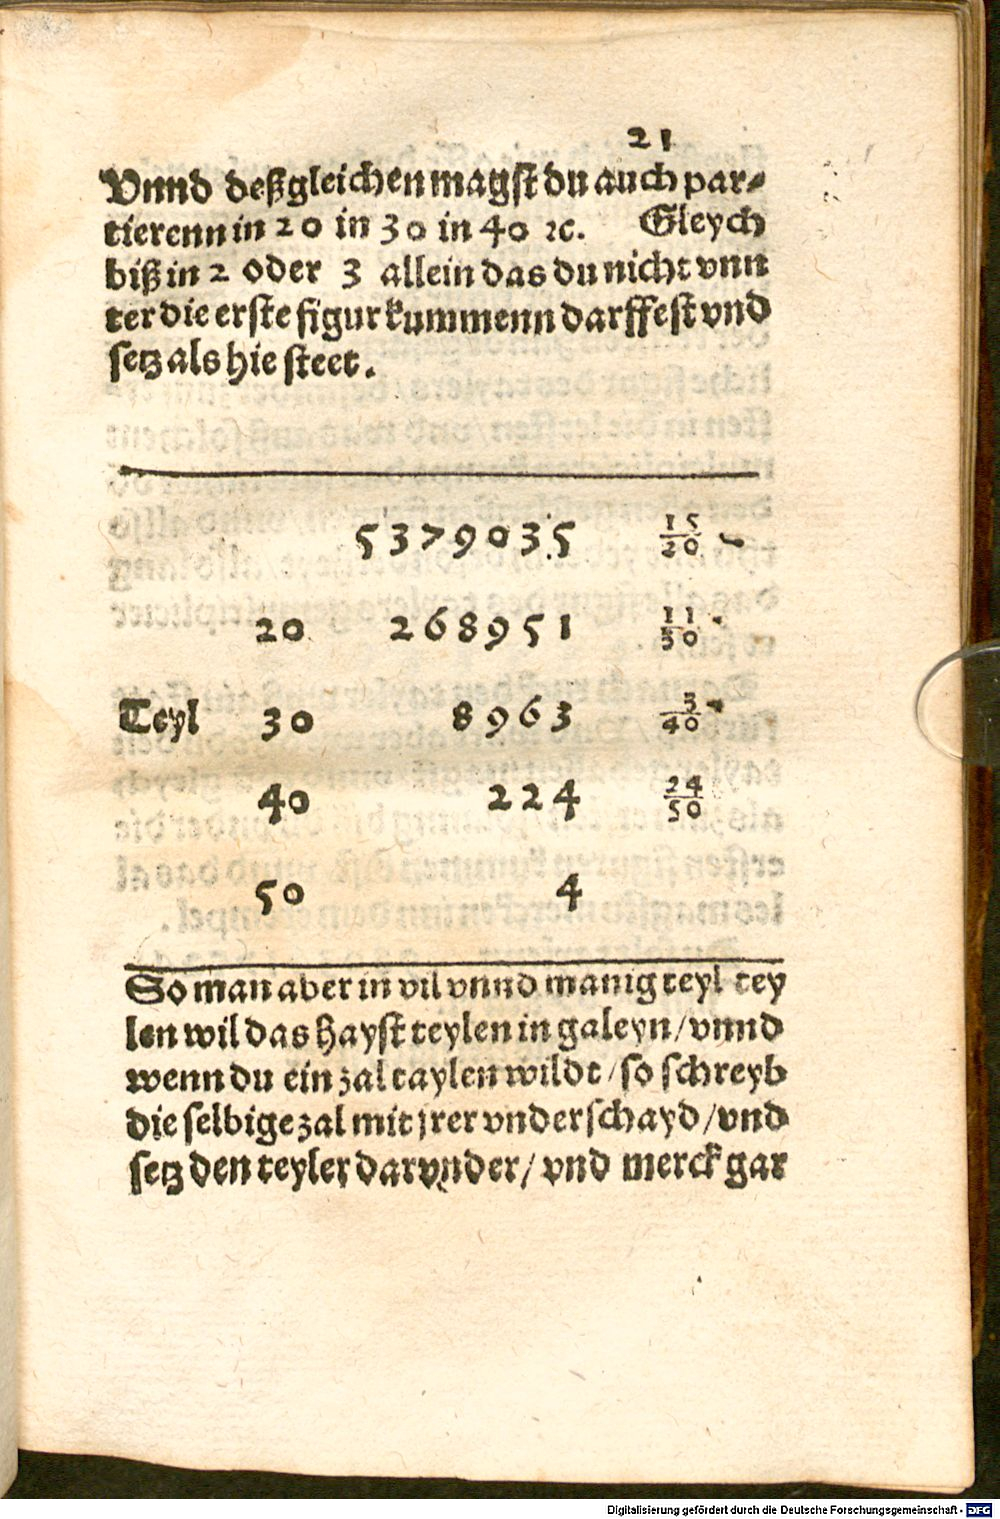 21
Vnnd deßgleichen magst du auch par⸗
tierenn in 20 in 30 in 40 ꝛc. Gleych
biß in 2 oder 3 allein das du nicht vnn
ter die erste figur kummenn darffest vnd
setz als hie steet.
5379035 15/20
20 268951 11/30
Teyl 30 8963 3/40
40 224 24/50
50 4
So man aber in vil vnnd manig teyl tey
len wil das hayst teylen in galeyn/vnnd
wenn du ein zal taylen wildt/so schreyb
die selbige zal mit jrer vnderschayd/vnd
setz den teyler darvnder/vnd merck gar
Digitalisierung gefördert durch die Deutsche Forschungsgemeinschaft - DFG